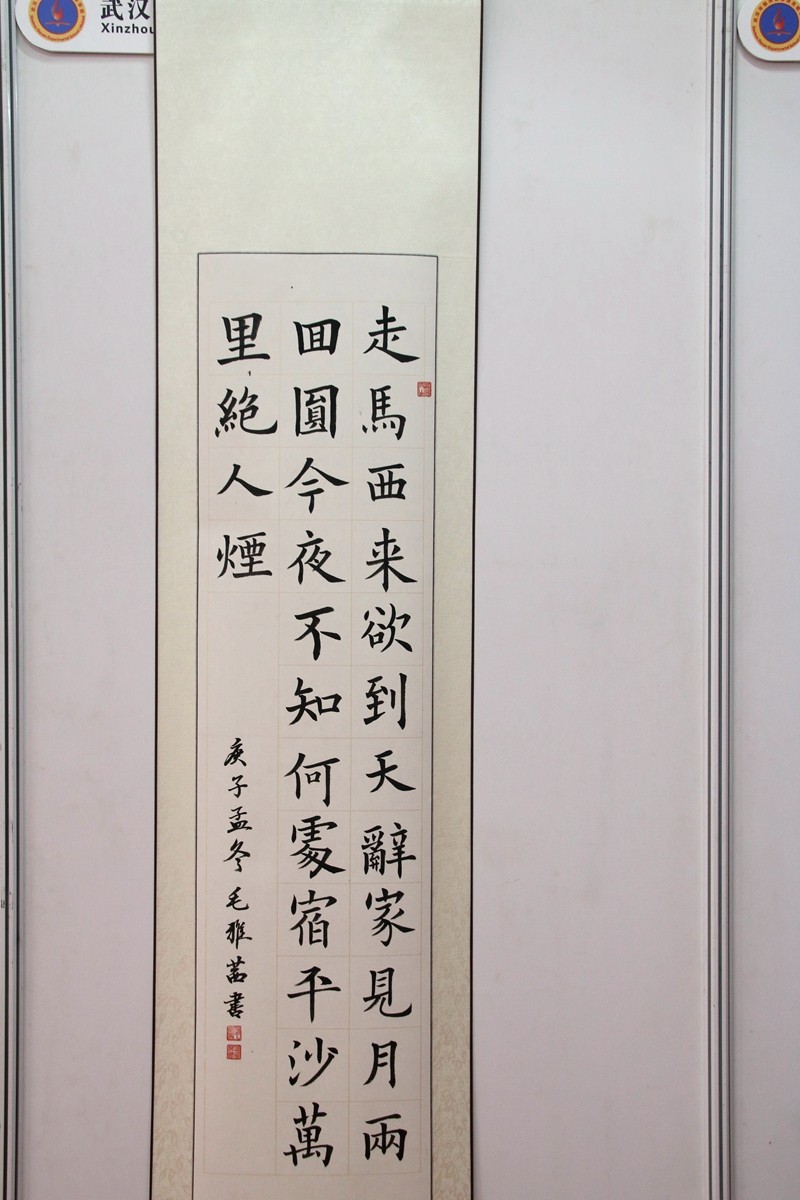 武汉
Xinzhou
走馬西来欲到天辭家見月兩
囬圓今夜不知何處宿平沙萬
里絕人煙
庚子孟冬毛雅茗書